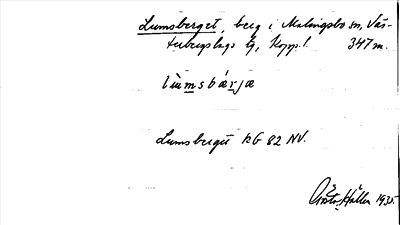 Lumsberget, berg i Malingsbo sn, Väs-
terbergslags tg, Kopp. l. 347 m.
lùmsbárjæ
Lumsberget KG 82 NV.
Gösta Häller 1935.